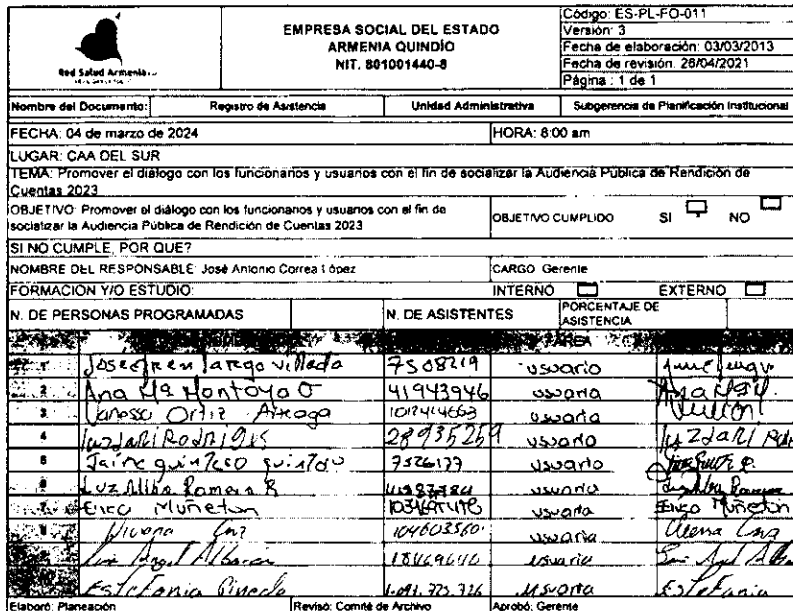 EMPRESA SOCIAL DEL ESTADO
ARMENIA QUINDÍO
NIT. 801001440-8
Red Salud Armenia
Código: ES-PL-FO-011
Versión: 3
Fecha de elaboración: 03/03/2013
Fecha de revisión: 26/04/2021
Página: 1 de 1
Nombre del Documento: Registro de Asistencia Unidad Administrativa Subgerencia de Planificación Institucional
FECHA: 04 de marzo de 2024 HORA: 8:00 am
LUGAR: CAA DEL SUR
TEMA: Promover el diálogo con los funcionarios y usuarios con el fin de socializar la Audiencia Pública de Rendición de
Cuentas 2023
OBJETIVO: Promover el diálogo con los funcionarios y usuarios con el fin de
socializar la Audiencia Pública de Rendición de Cuentas 2023
OBJETIVO CUMPLIDO SI NO
SI NO CUMPLE, POR QUE?
NOMBRE DEL RESPONSABLE: José Antonio Correa López CARGO: Gerente
FORMACION Y/O ESTUDIO: INTERNO EXTERNO
N. DE PERSONAS PROGRAMADAS N. DE ASISTENTES PORCENTAJE DE
ASISTENCIA
AREA
1 7508219 usuario
2 Ana Mª Montoya O 41943946 usuaria
3 Vanessa Ortiz 1012444663 usuaria
4 luzdaRi RodRi 28935259 usuaria
5 Jaime quintero 7526177 usuario
6 Luz Alba Romero R usuaria
7 Erica Muñeton usuaria Erica Muñeton
8 Viviana usuaria
Angel usuario
Estefania Pineda 1.091.725.726 usuaria Estefania
Elaboró: Planeación Revisó: Comité de Archivo Aprobó: Gerente